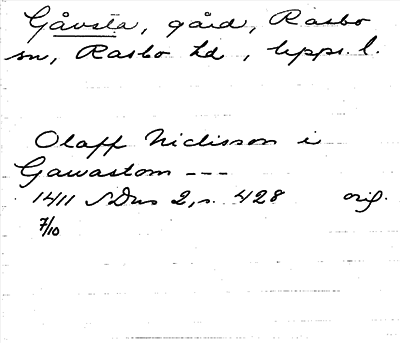 Gåvsta, gård, Rasbo
sn, Rasbo hd, Upps. l.
Olaff Niclisson i
Gawastom ---
1411 SDns 2, s. 428 orig.
7/10